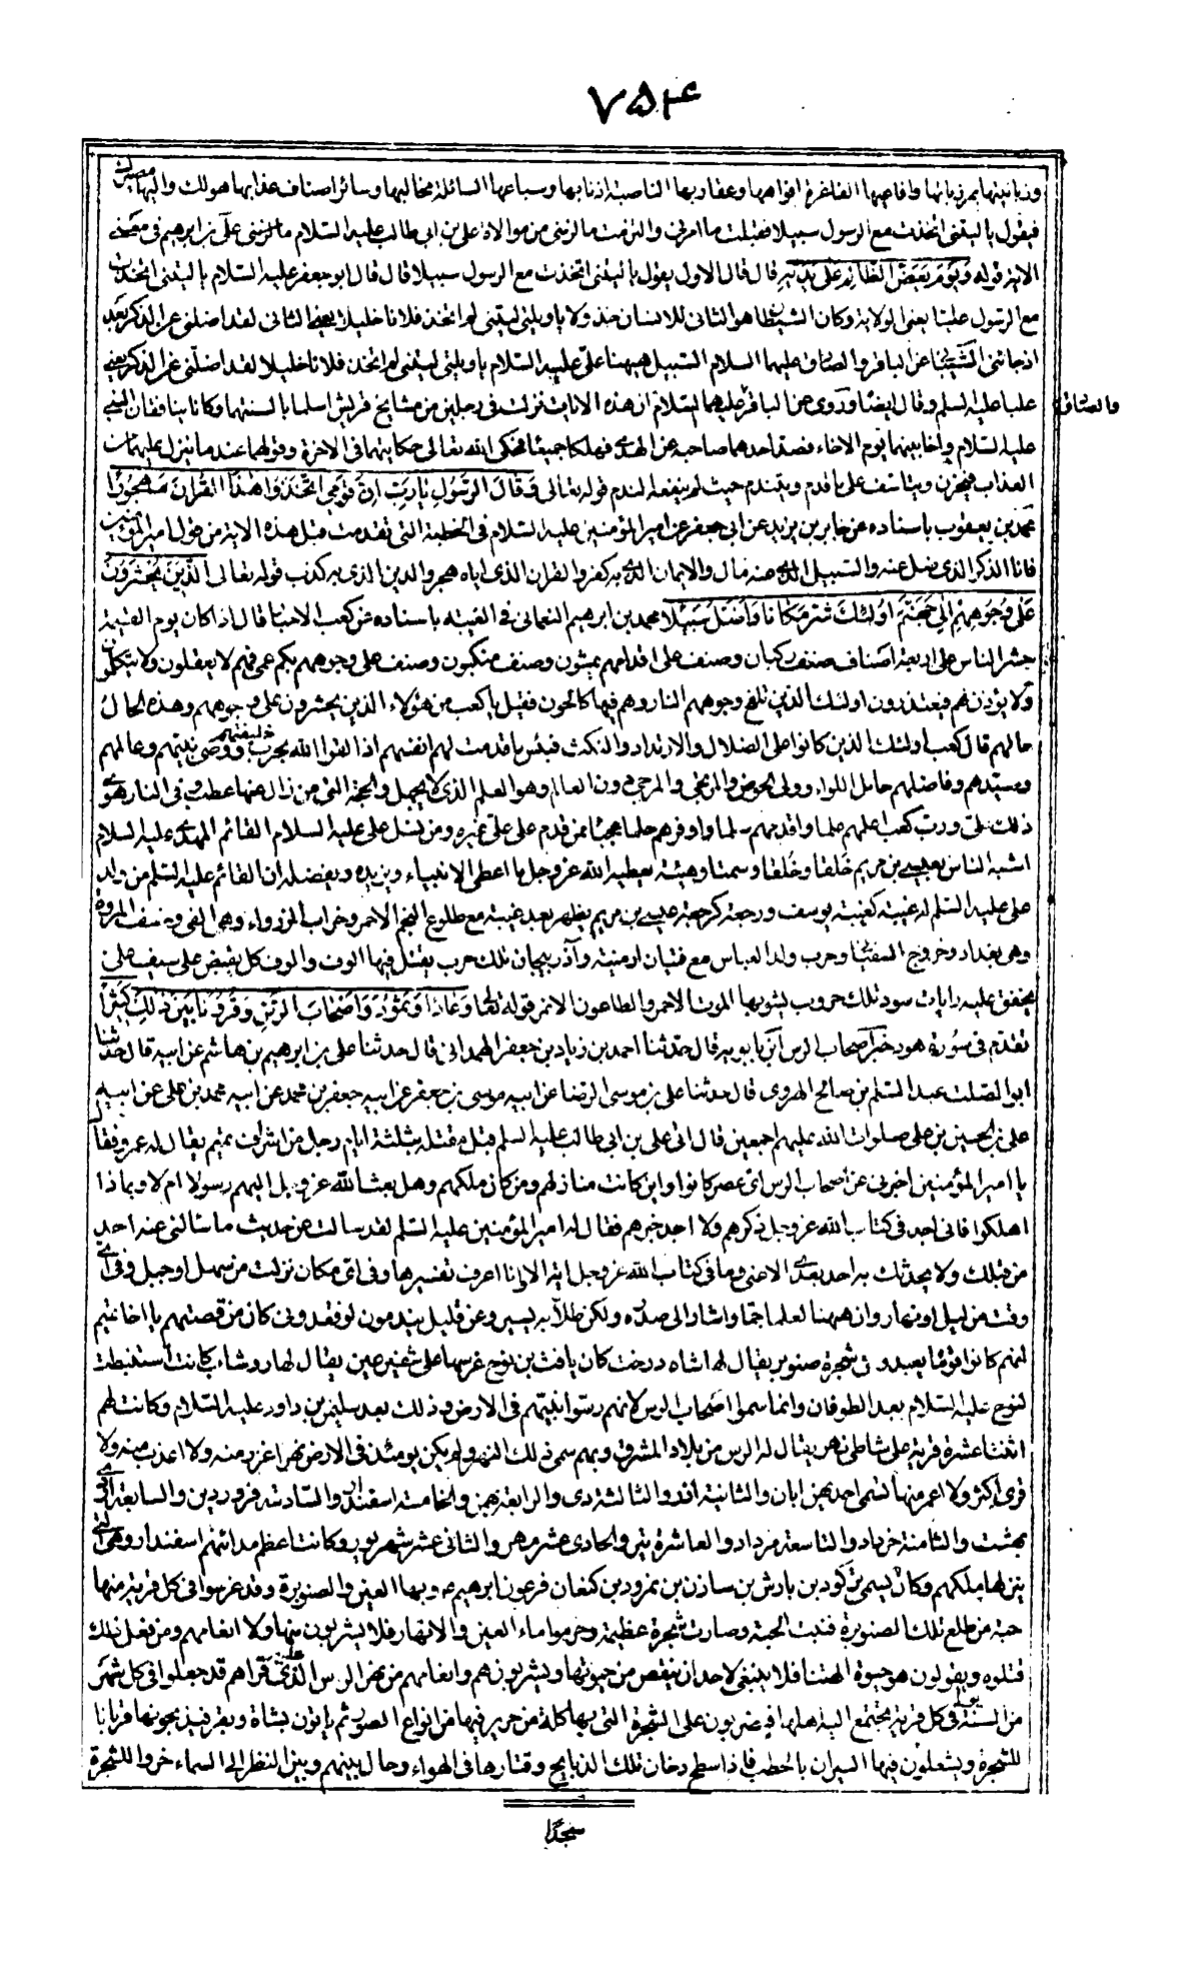 ٧٥٤
وزبانيتها بمرزباتها وافاعيها الفاغرة افواهها وعقاربها الناصبة اذنابها وسباعها السائلة مخالبها وسائر اصناف عذابها هو لك واليها مصيرك
فيقول يا ليتنى اتخذت مع الرسول سبيلا فقبلت ما امرنى والتزمت ما لزمنى من موالاة على بن ابى طالب عليه السلام ما لزمنى على بن ابرهيم فى
الاية قوله ويوم يعض الظالم على يديه قال قال الاول يقول يا ليتنى اتخذت مع الرسول سبيلا قال قال ابو جعفر عليه السلام يا ليتنى اتخذت
مع الرسول عليا يعنى الولاية وكان الشيطان هو الثانى للانسان خذولا يا ويلتى ليتنى لم اتخذ فلانا خليلا يعنى الثانى لقد اضلنى عن الذكر بعد
اذ جائنى الشيبانى عن الباقر والصادق عليهما السلام السبيل هيهنا على عليه السلام يا ويلتى ليتنى لم اتخذ فلانا خليلا لقد اضلنى عن الذكر يعنى
عليا عليه السلم وقال ايضا وروى عن الباقر عليهما السلام ان هذه الايات نزلت فى رجلين من مشايخ قريش اسلما بالسنتهما وكانا ينافقان النبى
والصادق
عليه السلام واخا بينهما يوم الاخاء فصد احدهما صاحبه عن الهدى فهلكا جميعا فحكى الله تعالى حكايتهما فى الاخرة وقولهما عند ما ينزل عليهما من
العذاب فيحزن ويتاسف على ما قدم ويتندم حيث لم ينفعه الندم قوله تعالى وقال الرسول يا رب ان قومى اتخذوا هذا القران مهجورا
محمد بن يعقوب باسناده عن جابر بن يزيد عن ابى جعفر عن امير المؤمنين عليه السلام فى الخطبة التى تقدمت قبل هذه الاية من قول امير المؤمنين
فانا الذكر الذى ضل عنه والسبيل الذى عنه مال والايمان الذى به كفر والقران الذى اياه هجر والدين الذى به كذب قوله تعالى الذين يحشرون
على وجوههم الى جهنم اولئك شر مكانا واضل سبيلا محمد بن ابرهيم النعمانى فى الغيبة باسناده عن كعب الاحبار قال اذا كان يوم القيمة
حشر الناس على اربعة اصناف صنف ركبان وصنف على اقدامهم يمشون وصنف منكبون وصنف على وجوههم بكم عمى فهم لا يعقلون ولا يتكلمون
ولا يؤذن لهم فيعتذرون اولئك الذين تلفح وجوههم النار وهم فيها كالحون فقيل يا كعب من هؤلاء الذين يحشرون على وجوههم وهذه الحال
حالهم قال كعب اولئك الذين كانوا على الضلال والارتداد والنكث فبئس ما قدمت لهم انفسهم اذا لقوا الله بحرب خليفتهم ووصى نبيهم وعالمهم
وسيدهم وفاضلهم حامل اللواء وولى الحوض والمرتجى والمرجى دون العالم وهو العلم الذى لا يجهل والحجة التى من زال عنها عطب فى النار هوى
ذلك على ورب كعب اعلمهم علما واقدمهم سلما واوفرهم حلما عجبا ممن قدم على على غيره ومن نسل على عليه السلام القائم المهدى عليه السلام
اشبه الناس بعيسى بن مريم خلقا وخلقا وسمتا وهيئة يعطيه الله عز وجل ما اعطى الانبياء ويزيده ويفضله ان القائم عليه السلم من ولد
على عليه السلم له غيبة كغيبة يوسف ورجعة كرجعة عيسى بن مريم يظهر بعد غيبته مع طلوع النجم الاحمر وخراب الزوراء وهى الرى وخسف المزورة
وهى بغداد وخروج السفيانى وحرب ولد العباس مع فتيان ارمنية وآذربيجان تلك حرب يقتل فيها الوف والوف كل يقبض على سيف محلى
يخفق عليه رايات سود تلك حروب يشوبها الموت الاحمر والطاعون الاحمر قوله تعالى وعادا وثمود واصحاب الرس وقرونا بين ذلك كثيرا
تقدم فى سورة هود خبر اصحاب الرس ابن بابويه قال حدثنا احمد بن زياد بن جعفر الهمدانى قال حدثنا على بن ابرهيم بن هاشم عن ابيه قال حدثنا
ابو الصلت عبد السلم بن صالح الهروى قال حدثنا على بن موسى الرضا عن ابيه موسى بن جعفر عن ابيه جعفر بن محمد عن ابيه محمد بن على عن ابيه
على بن الحسين بن على صلوات الله عليهم اجمعين قال اتى على بن ابى طالب عليه السلم قبل مقتله بثلثة ايام رجل من اشراف تميم يقال له عمرو فقال
يا امير المؤمنين اخبرنى عن اصحاب الرس اى عصر كانوا واين كانت منازلهم ومن كان ملكهم وهل بعث الله عز وجل اليهم رسولا ام لا وبماذا
اهلكوا فانى اجد فى كتاب الله عز وجل ذكرهم ولا اجد خبرهم فقال له امير المؤمنين عليه السلم لقد سالت عن حديث ما سالنى عنه احد
من قبلك ولا يحدثك به احد بعدى الا عنى وما فى كتاب الله عز وجل اية الا وانا اعرف تفسيرها وفى اى مكان نزلت من سهل او جبل وفى اى
وقت من ليل او نهار وان هيهنا لعلما جما واشار الى صدره ولكن طلابه يسير وعن قليل يندمون لو فقدونى كان من قصتهم يا اخا تميم
انهم كانوا قوما يعبدون شجرة صنوبر يقال له اشاه درخت كان يافث بن نوح غرسها على شفير عين يقال لها روشاب كانت استنبطت
لنوح عليه السلام بعد الطوفان وانما سموا اصحاب الرس لانهم رسوا نبيهم فى الارض وذلك بعد سليمن بن داود عليه السلام وكانت لهم
اثنتا عشرة قرية على شاطى نهر يقال له الرس من بلاد المشرق وبهم سمى ذلك النهر ولم يكن يومئذ فى الارض نهر اغزر منه ولا اعذب منه ولا
قرى اكثر ولا اعمر منها تسمى احديهن ابان والثانية اذر والثالثة دى والرابعة بهمن والخامسة اسفندار والسادسة فروردين والسابعة اردى
بهشت والثامنة خرداد والتاسعة مرداد والعاشرة تير والحادى عشر مهر والثانى عشر شهريور وكانت اعظم مدائنهم اسفندار وهى التى
ينزلها ملكهم وكان يسمى تركوذ بن يارش بن سازن بن نمرود بن كنعان فرعون ابرهيم ع وبها العين والصنوبرة وقد غرسوا فى كل قرية منها
حبة من طلع تلك الصنوبرة فنبت الحبة وصارت شجرة عظيمة وحرموا ماء العين والانهار فلا يشربون منها ولا انعامهم ومن فعل ذلك
قتلوه ويقولون هو حيوة الهتنا فلا ينبغى لاحد ان ينقص من حيوتها ويشربون هم وانعامهم من نهر الرس الذى عليه قراهم قد جعلوا فى كل شهر
من السنة فى كل قرية يوما يجتمع اليه اهلها فيضربون على الشجرة التى بها كلة من حرير فيها من انواع الصور ثم ياتون بشاة وبقر فيذبحونها قربانا
للشجرة ويشعلون فيها النيران بالحطب فاذا سطع دخان تلك الذبايح وقتارها فى الهواء وحال بينهم وبين النظر الى السماء خروا للشجرة
سجدا